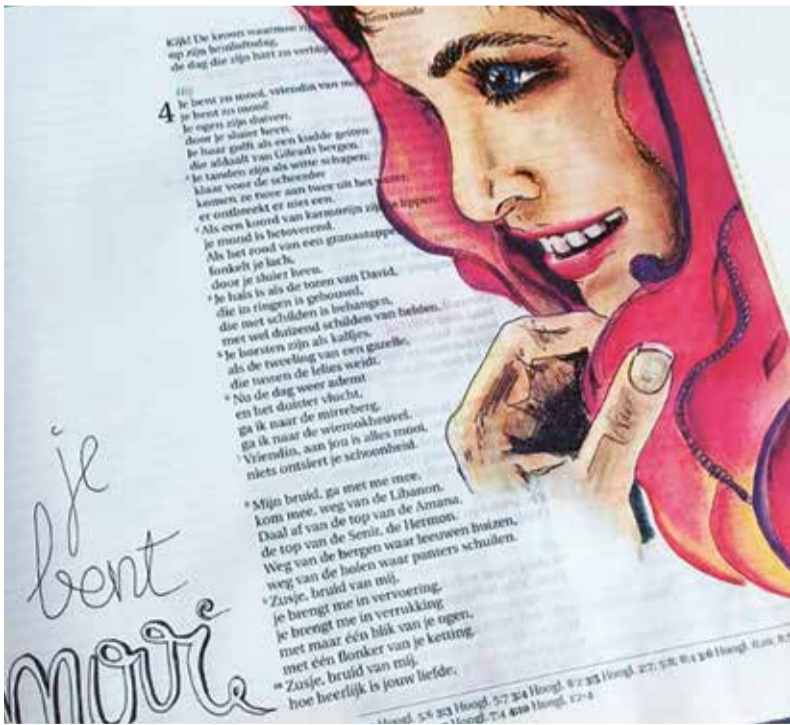 Kijk! De kroon waarmee zij hem tooide
op zijn bruiloftsdag,
de dag die zijn hart zo verblij
Hij
4 Je bent zo mooi, vriendin van mij
je bent zo mooi!
Je ogen zijn duiven,
door je sluier heen.
Je haar golft als een kudde geiten
die afdaalt van Gileads bergen.
2 Je tanden zijn als witte schapen:
klaar voor de scheerder
komen ze twee aan twee uit het water,
er ontbreekt er niet een.
3 Als een koord van karmozijn zijn je lippen:
je mond is betoverend.
Als het rood van een granaatappel
fonkelt je lach,
door je sluier heen.
4 Je hals is als de toren van David,
die in ringen is gebouwd,
die met schilden is behangen,
met wel duizend schilden van helden.
5 Je borsten zijn als kalfjes,
als de tweeling van een gazelle,
die tussen de lelies weidt.
6 Nu de dag weer ademt
en het duister vlucht,
ga ik naar de mirreberg,
ga ik naar de wierookheuvel.
7 Vriendin, aan jou is alles mooi,
niets ontsiert je schoonheid.
8 Mijn bruid, ga met me mee,
kom mee, weg van de Libanon.
Daal af van de top van de Amana,
de top van de Senir, de Hermon.
Weg van de bergen waar leeuwen huizen,
weg van de holen waar panters schuilen.
9 Zusje, bruid van mij,
je brengt me in vervoering,
je brengt me in verrukking
met maar één blik van je ogen,
met één flonker van je ketting.
10 Zusje, bruid van mij,
hoe heerlijk is jouw liefde,
je
bent
mooi
Hoogl. 5:6 3:3 Hoogl. 5:7 3:4 Hoogl. 8:2 3:5 Hoogl. 2:7; 5:8; 8:4 3:6 Hoogl. 6:10; 8:5
Hoogl. 7:4 4:10 Hoogl. 1:2-4